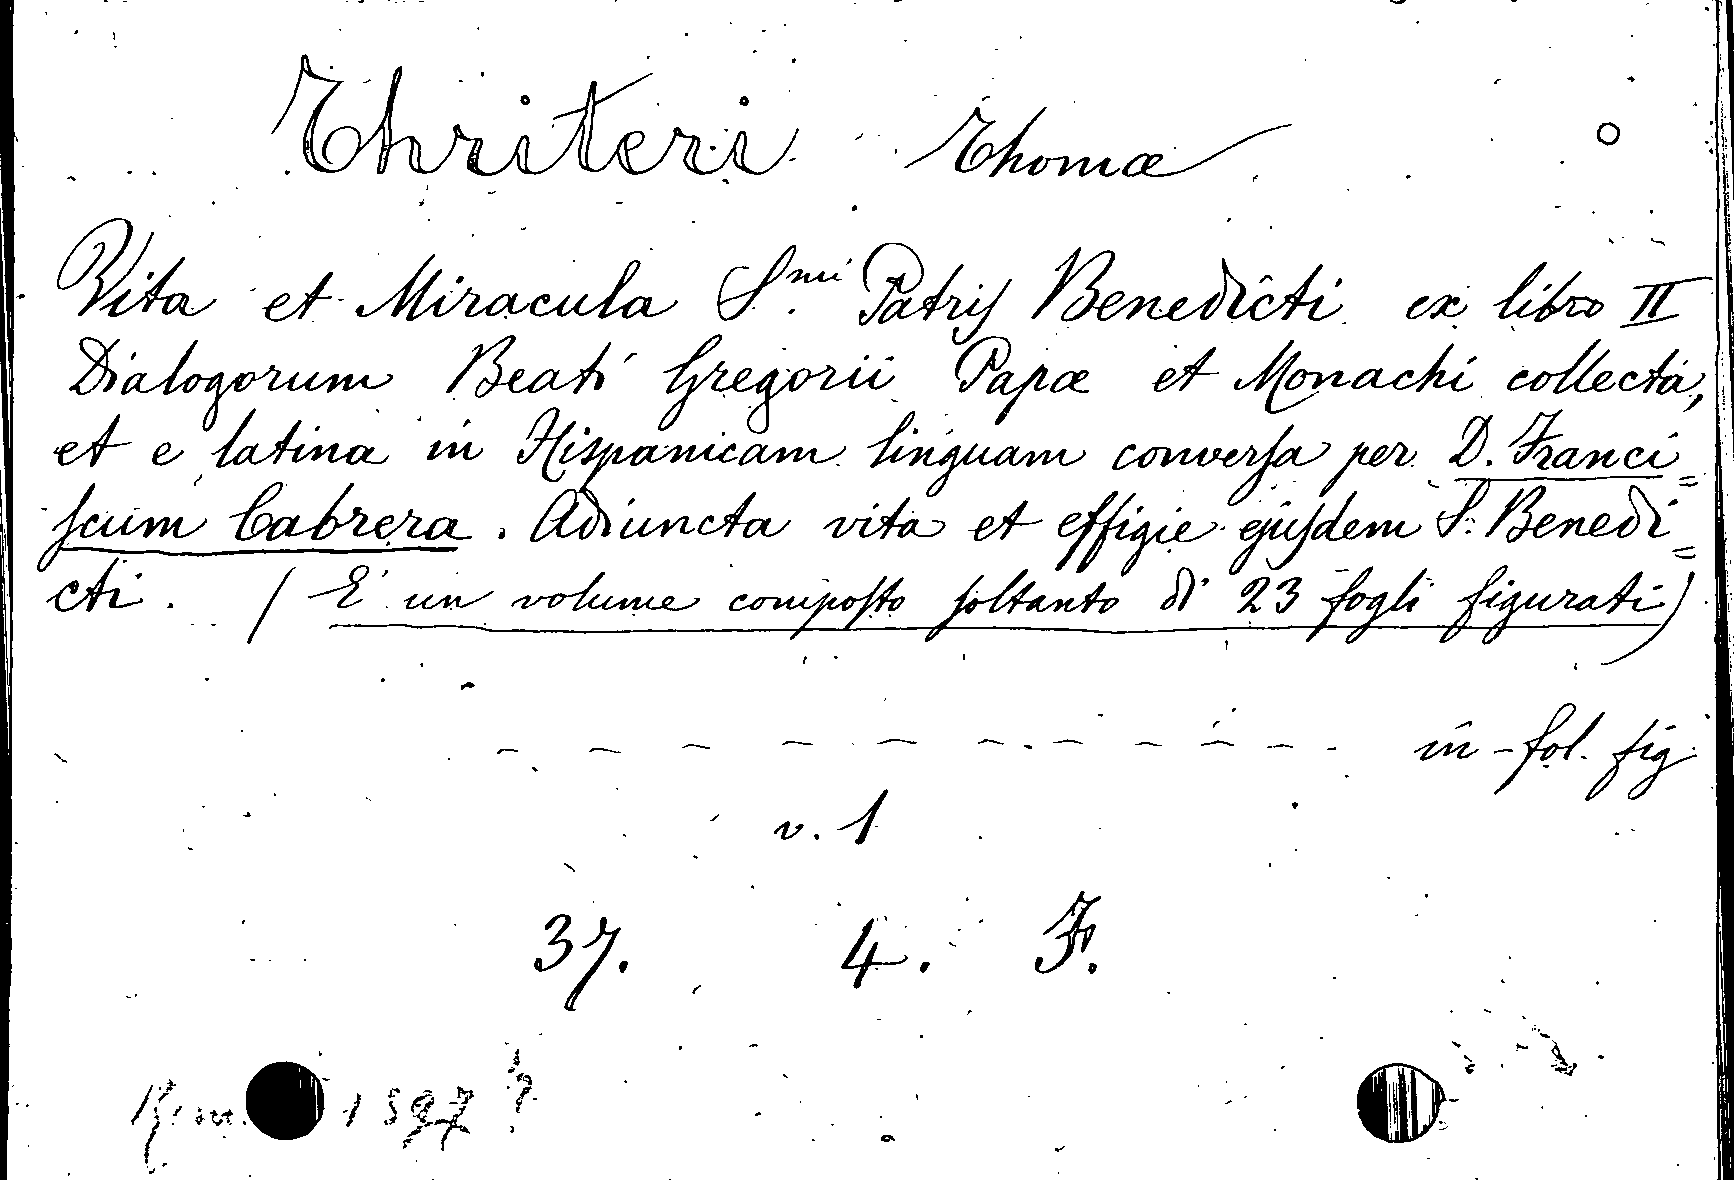 Thriteri Thomæ
Vita et Miracula S.mi Patris Benedicti ex libro II
Dialogorum Beati Gregorii Papæ et Monachi collecta,
et e latina in Hispanicam linguam conversa per D. Franci=
scum Cabrera. Adiuncta vita et effigie ejusdem S. Benedi=
cti. (E' un volume composto soltanto di 23 fogli figurati)
in-fol. fig.
v. 1
37. 4. F.
1597